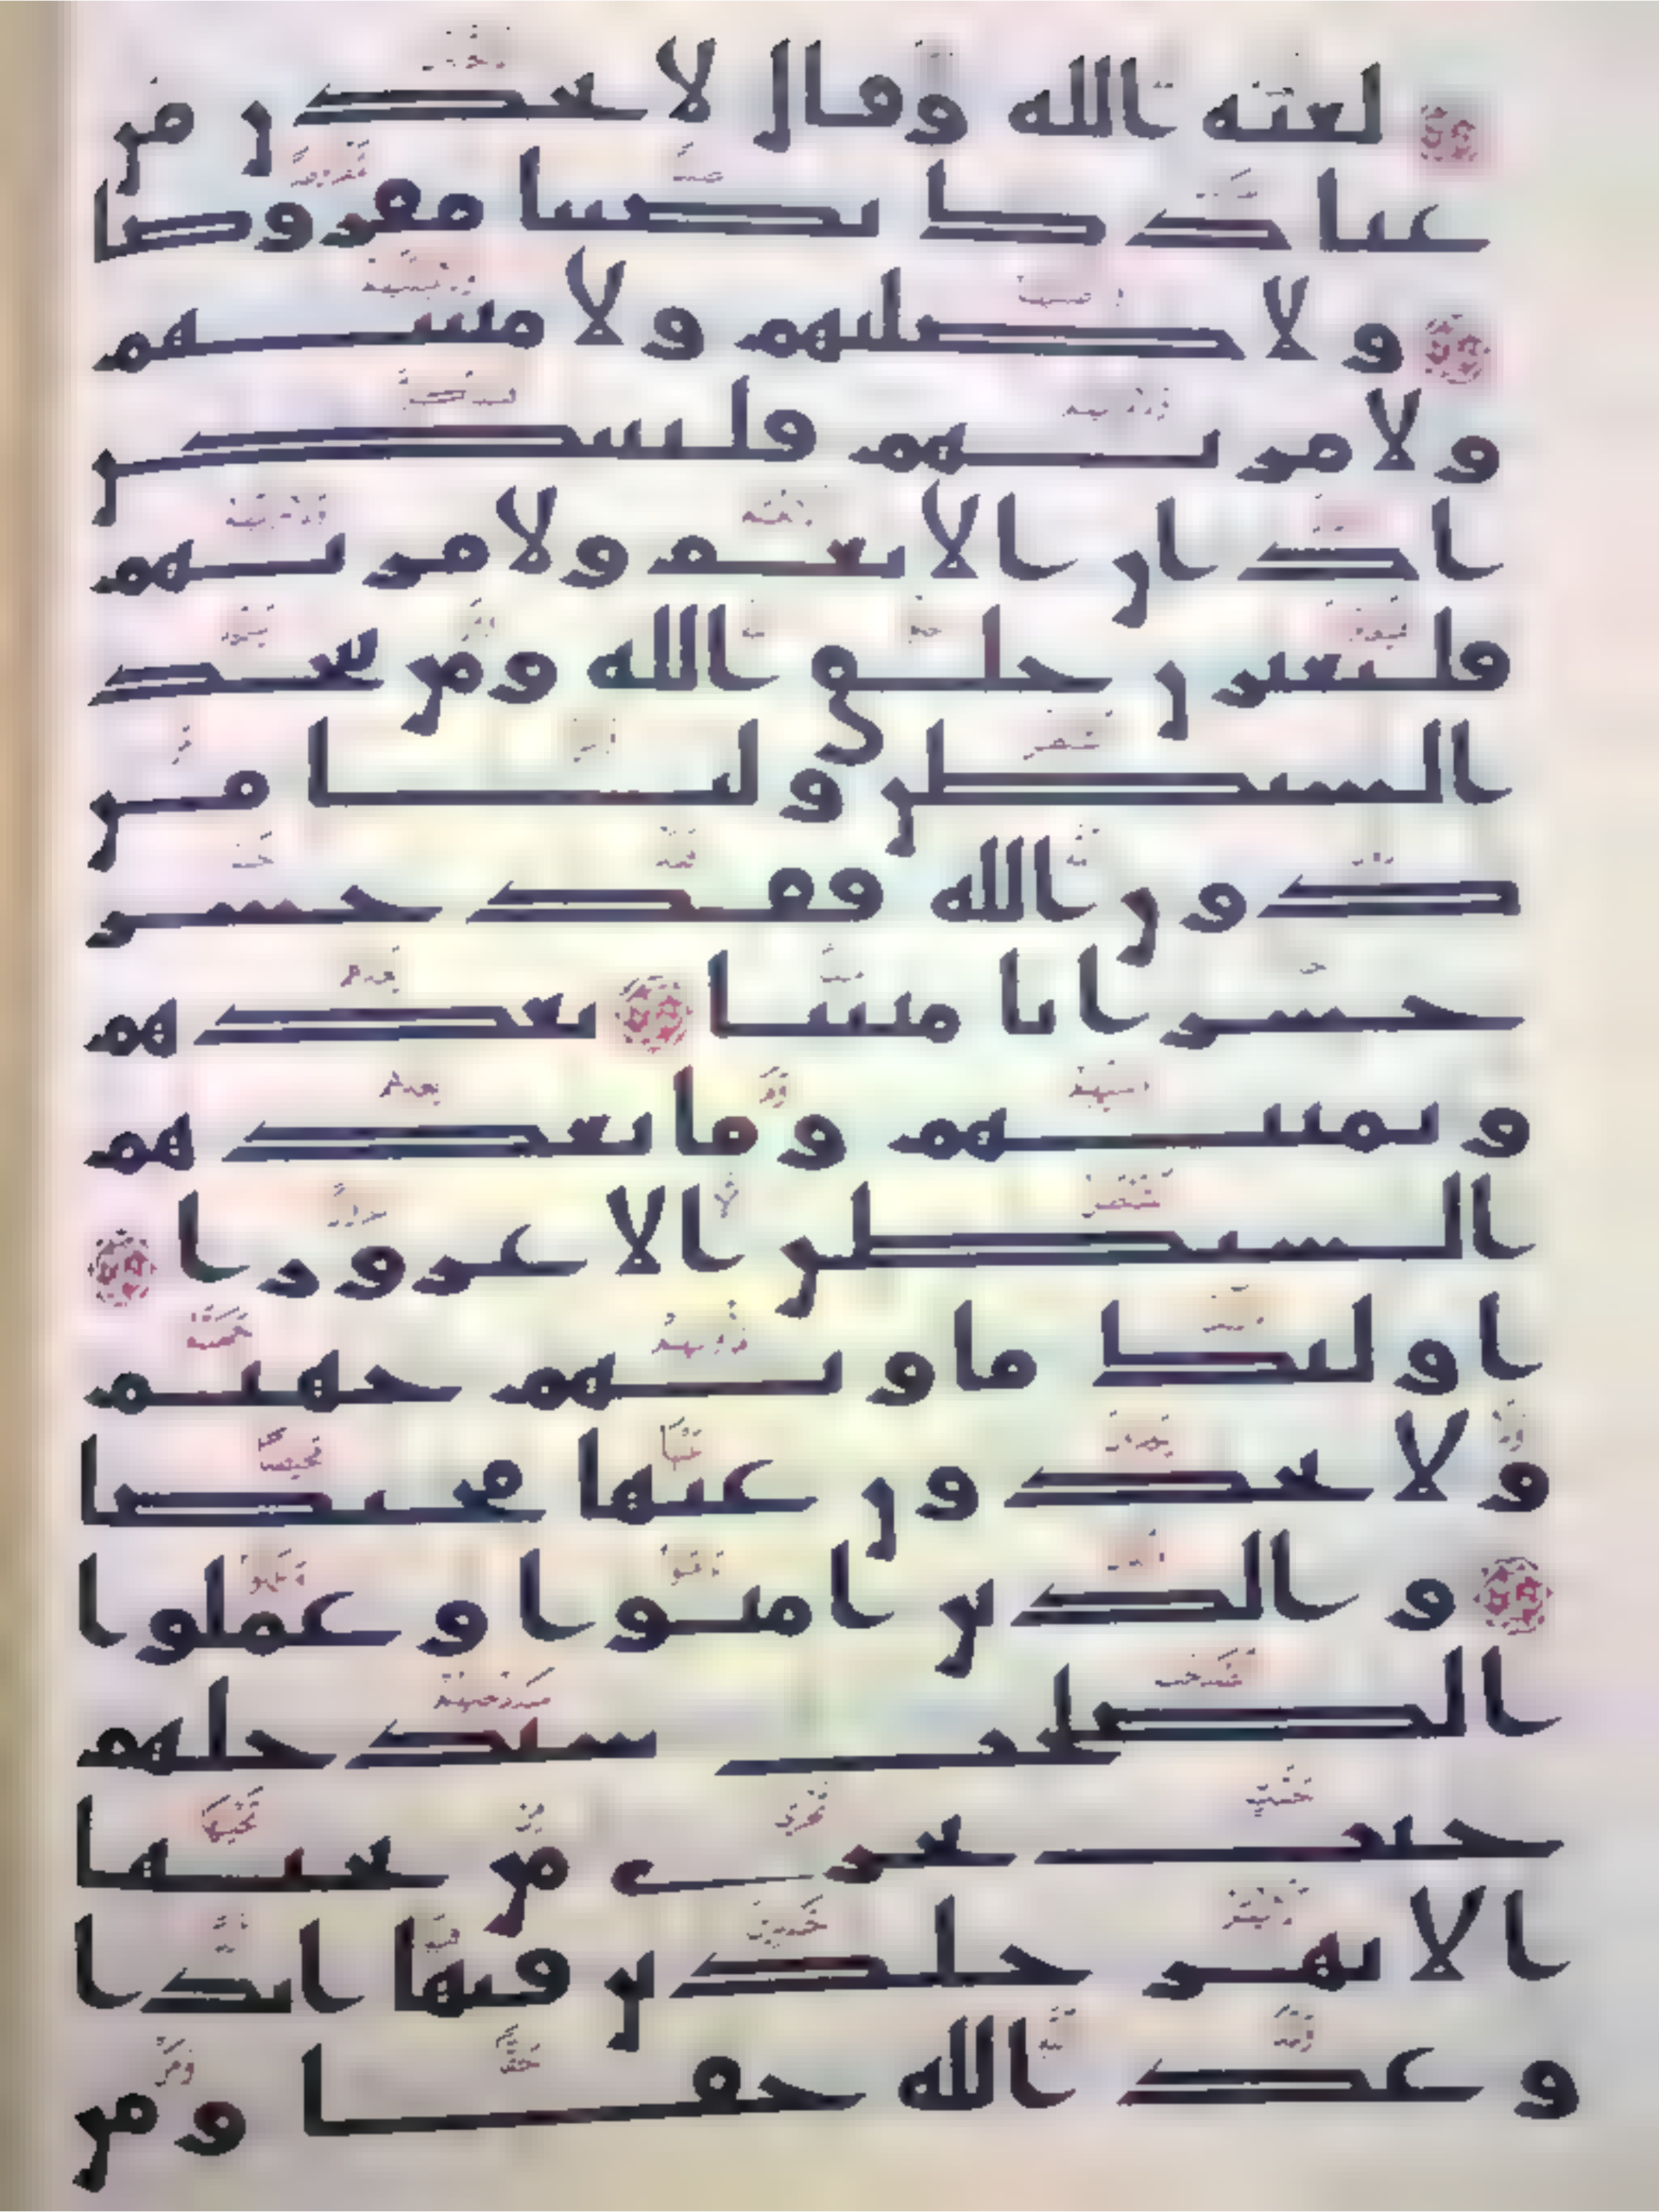 لعنه الله وقال لاتخذن من
عبادك نصيبا مفروضا
ولاضلنهم ولامنينهم
ولامرنهم فليبتكن
اذان الانعم ولامرنهم
فليغيرن خلق الله ومن يتخذ
الشيطن وليا من
دون الله فقد خسر
خسرانا مبينا يعدهم
ويمنيهم وما يعدهم
الشيطن الا غرورا
اولئك ماويهم جهنم
ولا يجدون عنها محيصا
والذين امنوا وعملوا
الصلحت سندخلهم
جنت تجري من تحتها
الانهر خلدين فيها ابدا
وعد الله حقا ومن